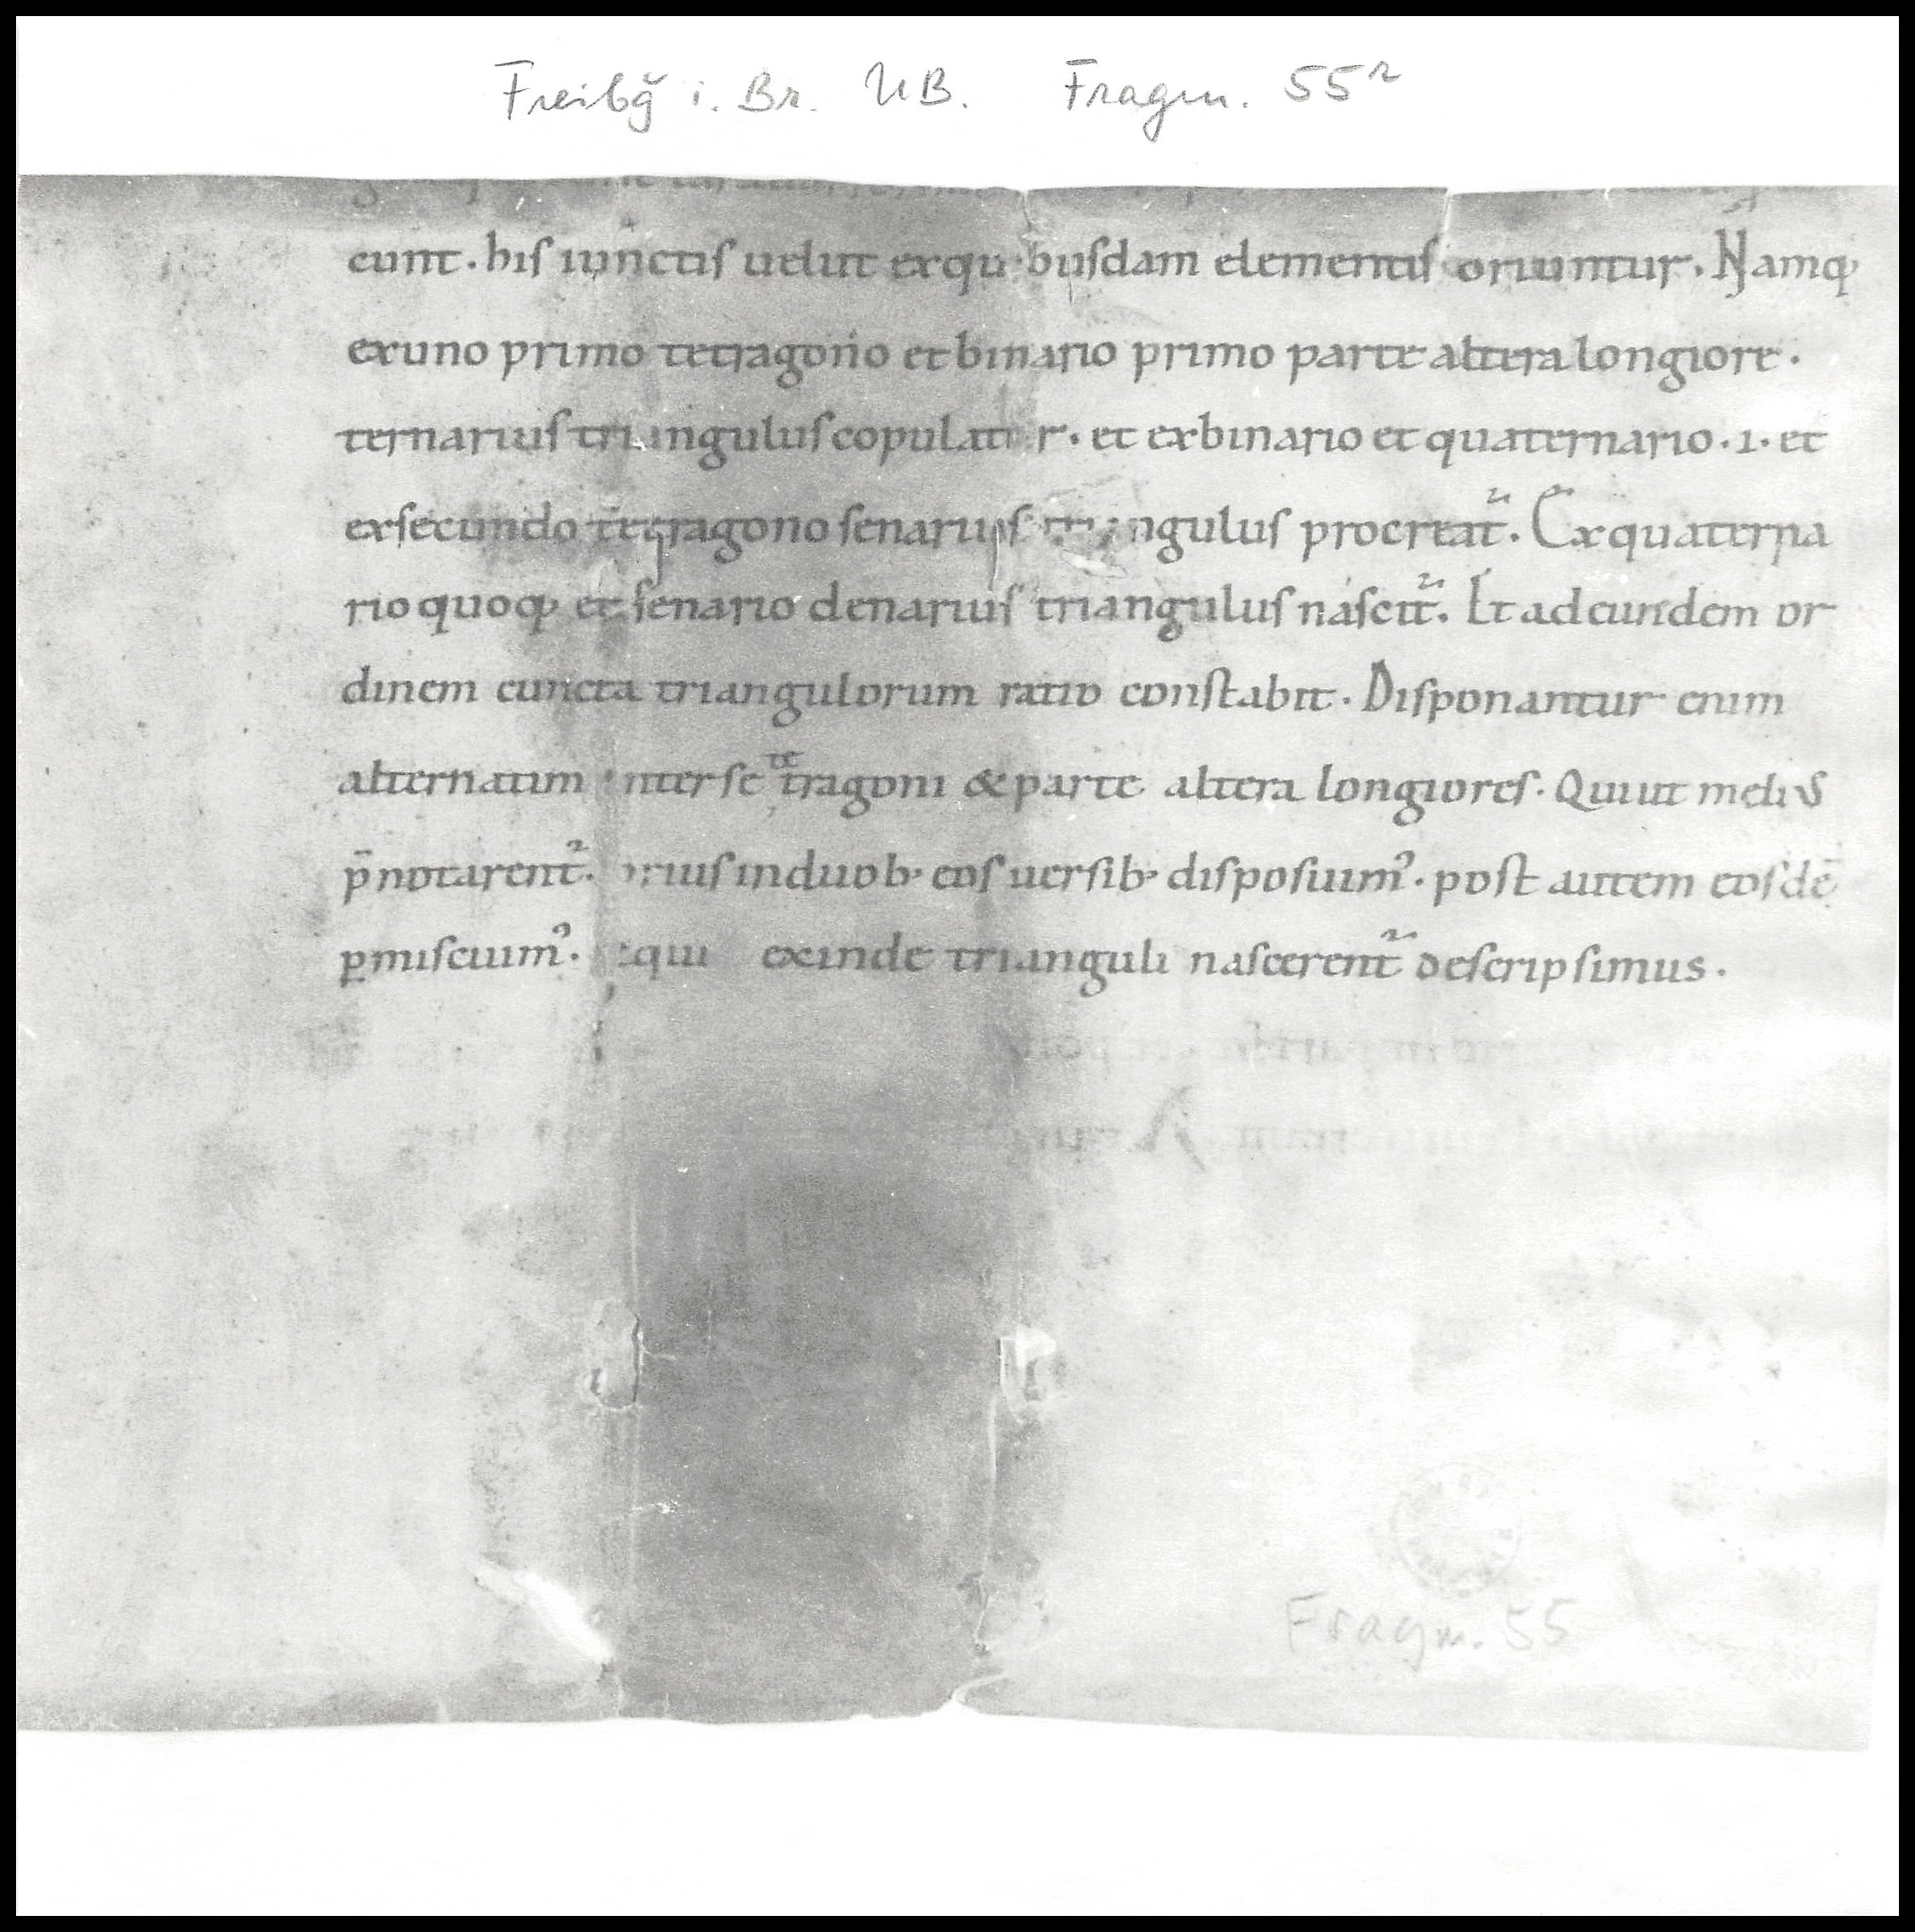 Freibg̃ i. Br. UB. Fragm. 55ʳ
cunt. his iunctis uelut exqu busdam elementis oriuntur. Namq;
exuno primo tetragono et binario primo parte altera longiore.
ternarius tri ngulus copulat r. et exbinario et quaternario. 1. et
exsecundo tetragono senarius tri ngulus procreat᷑. Ex quaterna
rio quoq; et senario denarius triangulus nascit᷑. Et ad eundem or
dinem cuncta triangulorum ratio constabit. Disponantur enim
alternatim nter se tetragoni & parte altera longiores. Qui ut meliuS
p̄notarent᷑. rius induob; eos uersib; disposuim᷒. post autem eosdē
ꝑmiscuim᷒. qui exinde trianguli nascerent᷑ descripsimus.
Fragm. 55